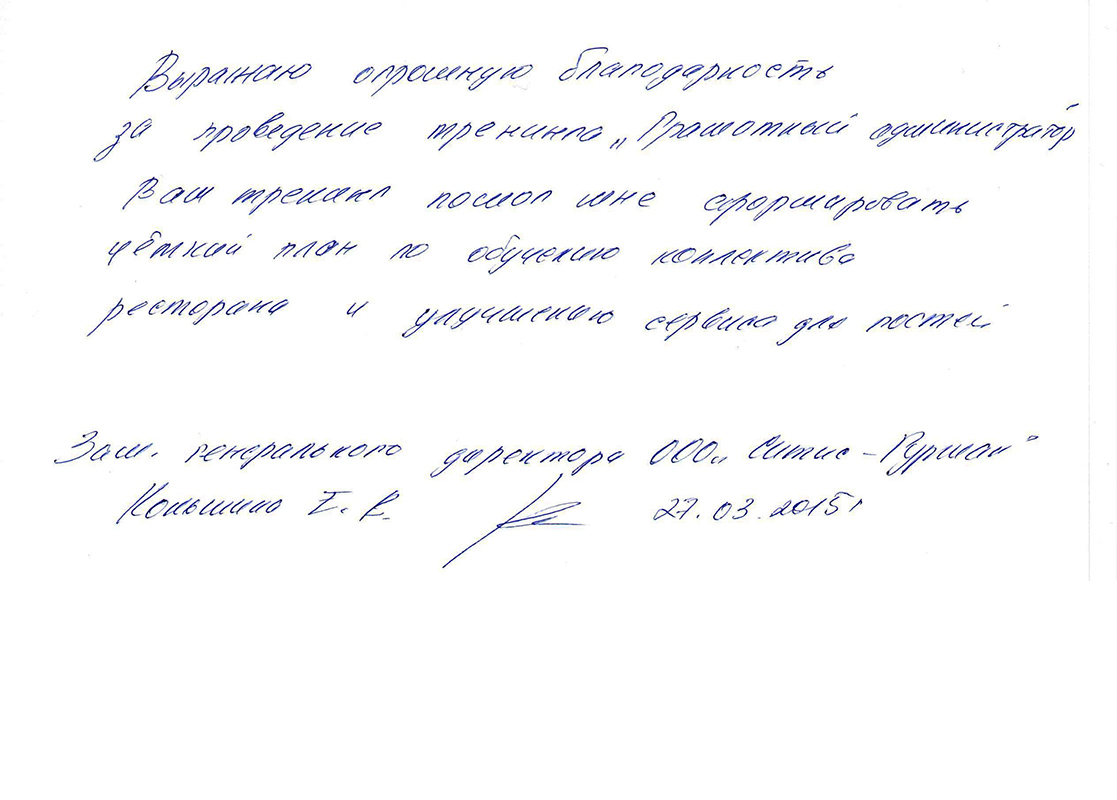 Выражаю огромную благодарность
за проведение тренинга „Грамотный администратор"
Ваш тренинг помог мне сформировать
чёткий план по обучению коллектива
ресторана и улучшению сервиса для гостей
Зам. генерального директора ООО „Ситис-Гурман"
Е. В.
27.03.2015г